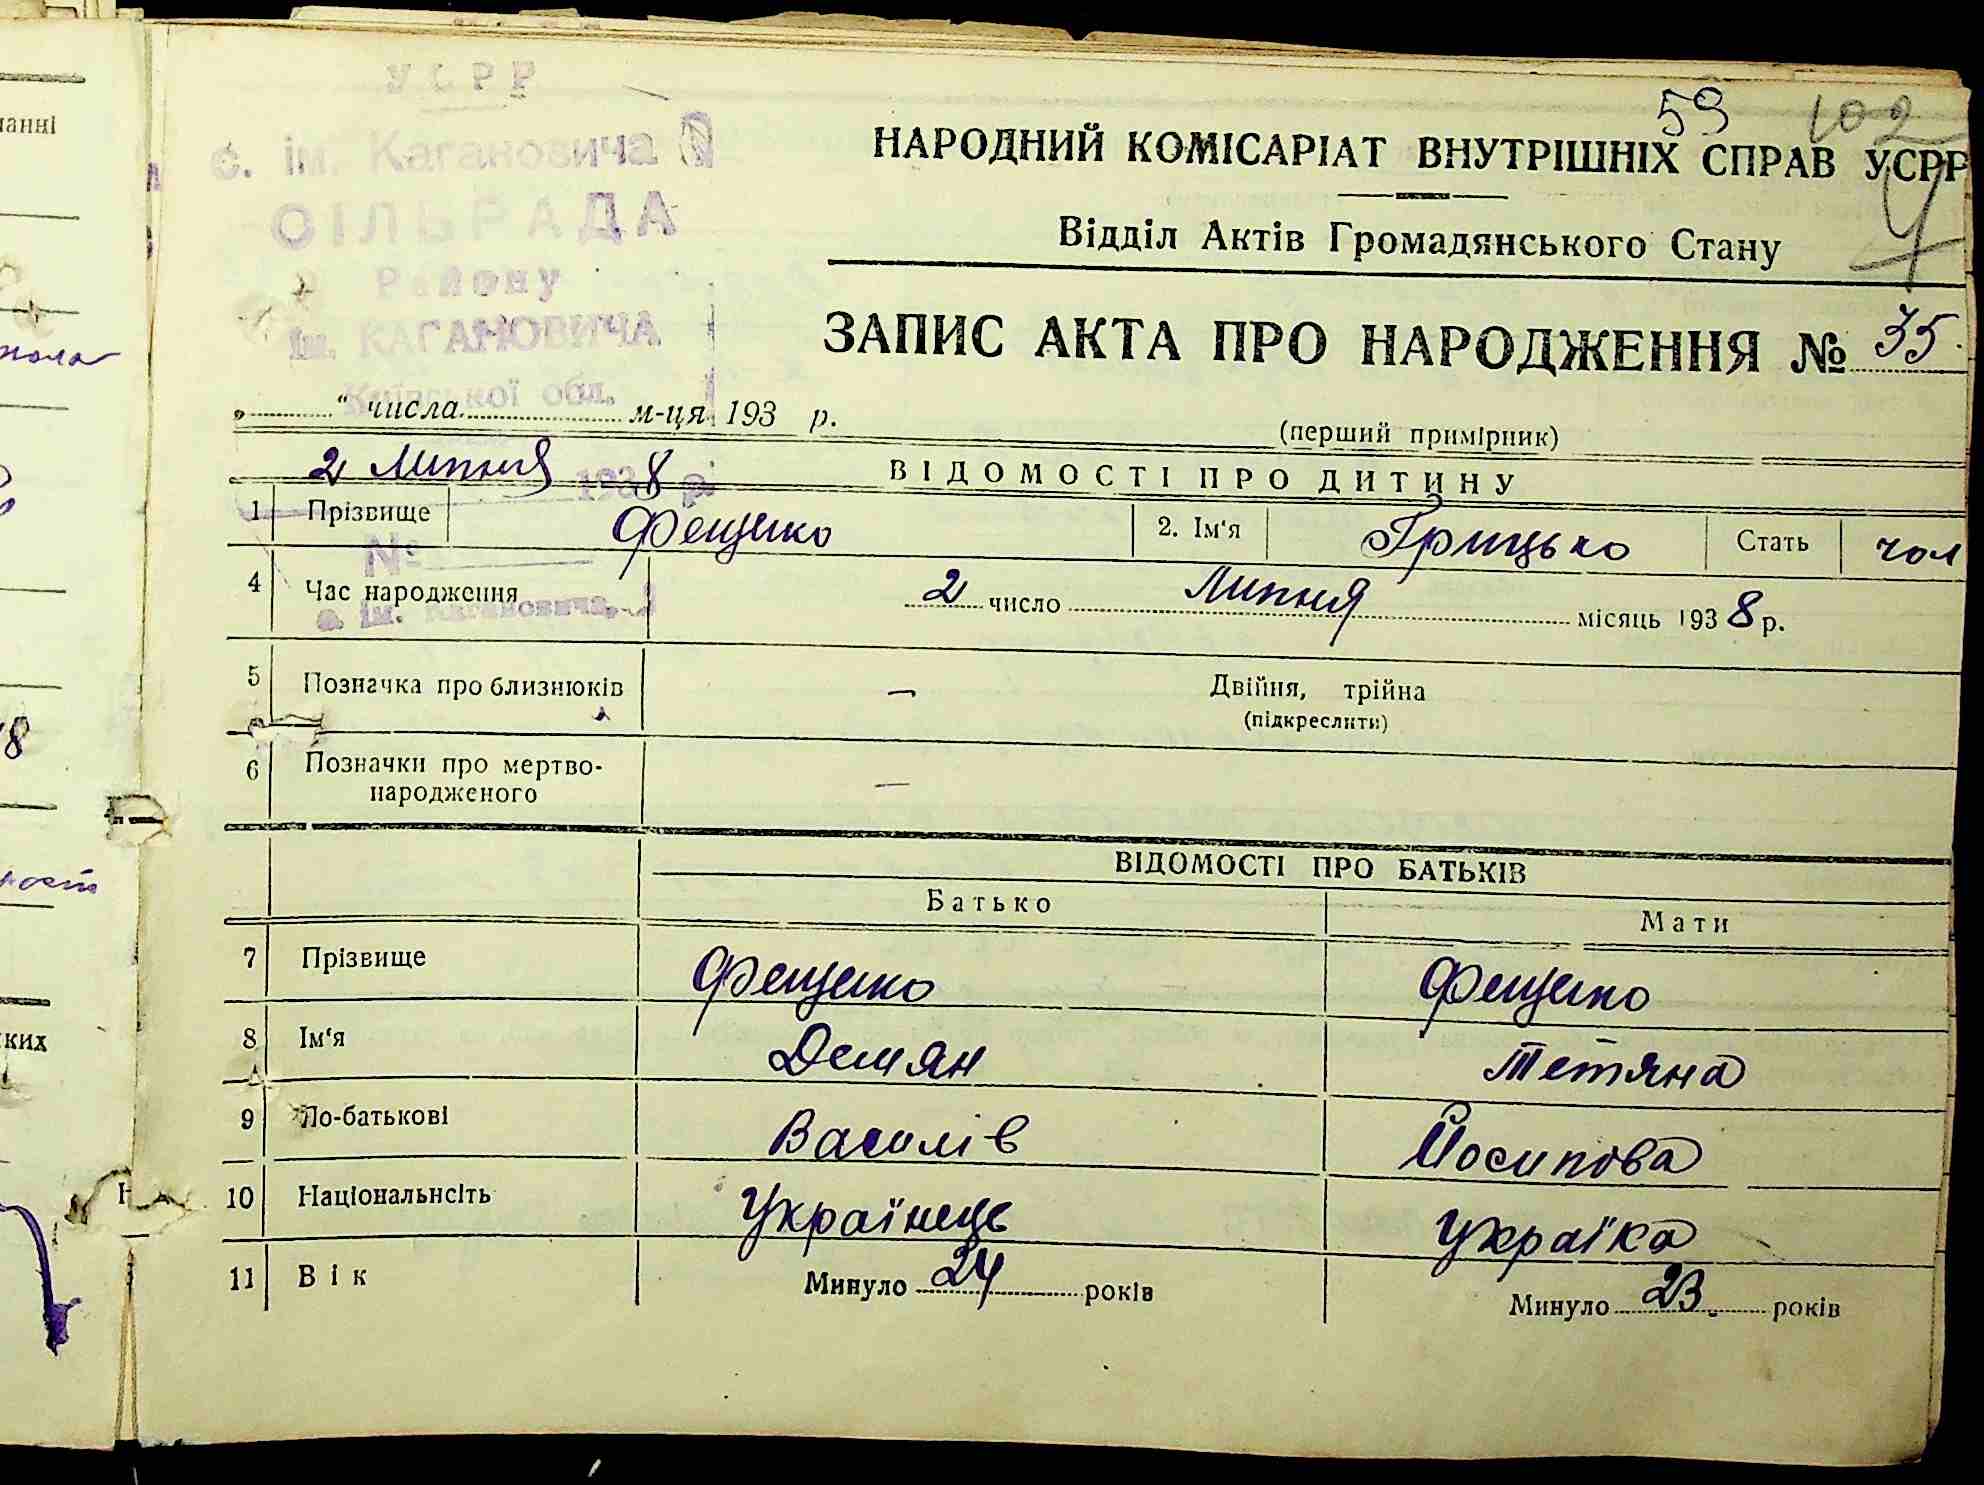 УСРР
с. ім. Кагановича
СІЛЬРАДА
Району
ім. КАГАНОВИЧА
Київської обл.
59 102
НАРОДНИЙ КОМІСАРІАТ ВНУТРІШНІХ СПРАВ УСРР
Відділ Актів Громадянського Стану
ЗАПИС АКТА ПРО НАРОДЖЕННЯ № 35
„ “ числа м-ця 193 р.
(перший примірник)
2 Липня 1938 р.
ВІДОМОСТІ ПРО ДИТИНУ
1 Прізвище Фещенко 2. Ім‘я Грицько Стать чол
№
4 Час народження 2 число Липня місяць 1938 р.
с. ім. Кагановича
5 Позначка про близнюків — Двійня, трійна
(підкреслити)
6 Позначки про мертво-
народженого —
ВІДОМОСТІ ПРО БАТЬКІВ
Батько Мати
7 Прізвище Фещенко Фещенко
8 Ім‘я Демян Тетяна
9 По-батькові Василів Йосипова
10 Національнсіть Українець Украіка
11 Вік Минуло 24 років Минуло 23 років